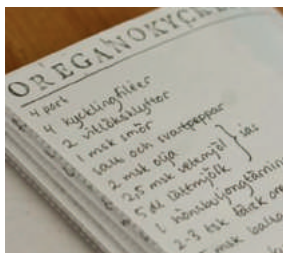 OREGANOKYCK
4 port
4 kycklingfiléer
2 vitlöksklyftor
1 msk smör
salt och svartpeppar
2 msk olja
2,5 msk vetemjöl } sås
5 dl lättmjölk
1 hönsbuljongtärning
2-3 tsk tork ore
msk